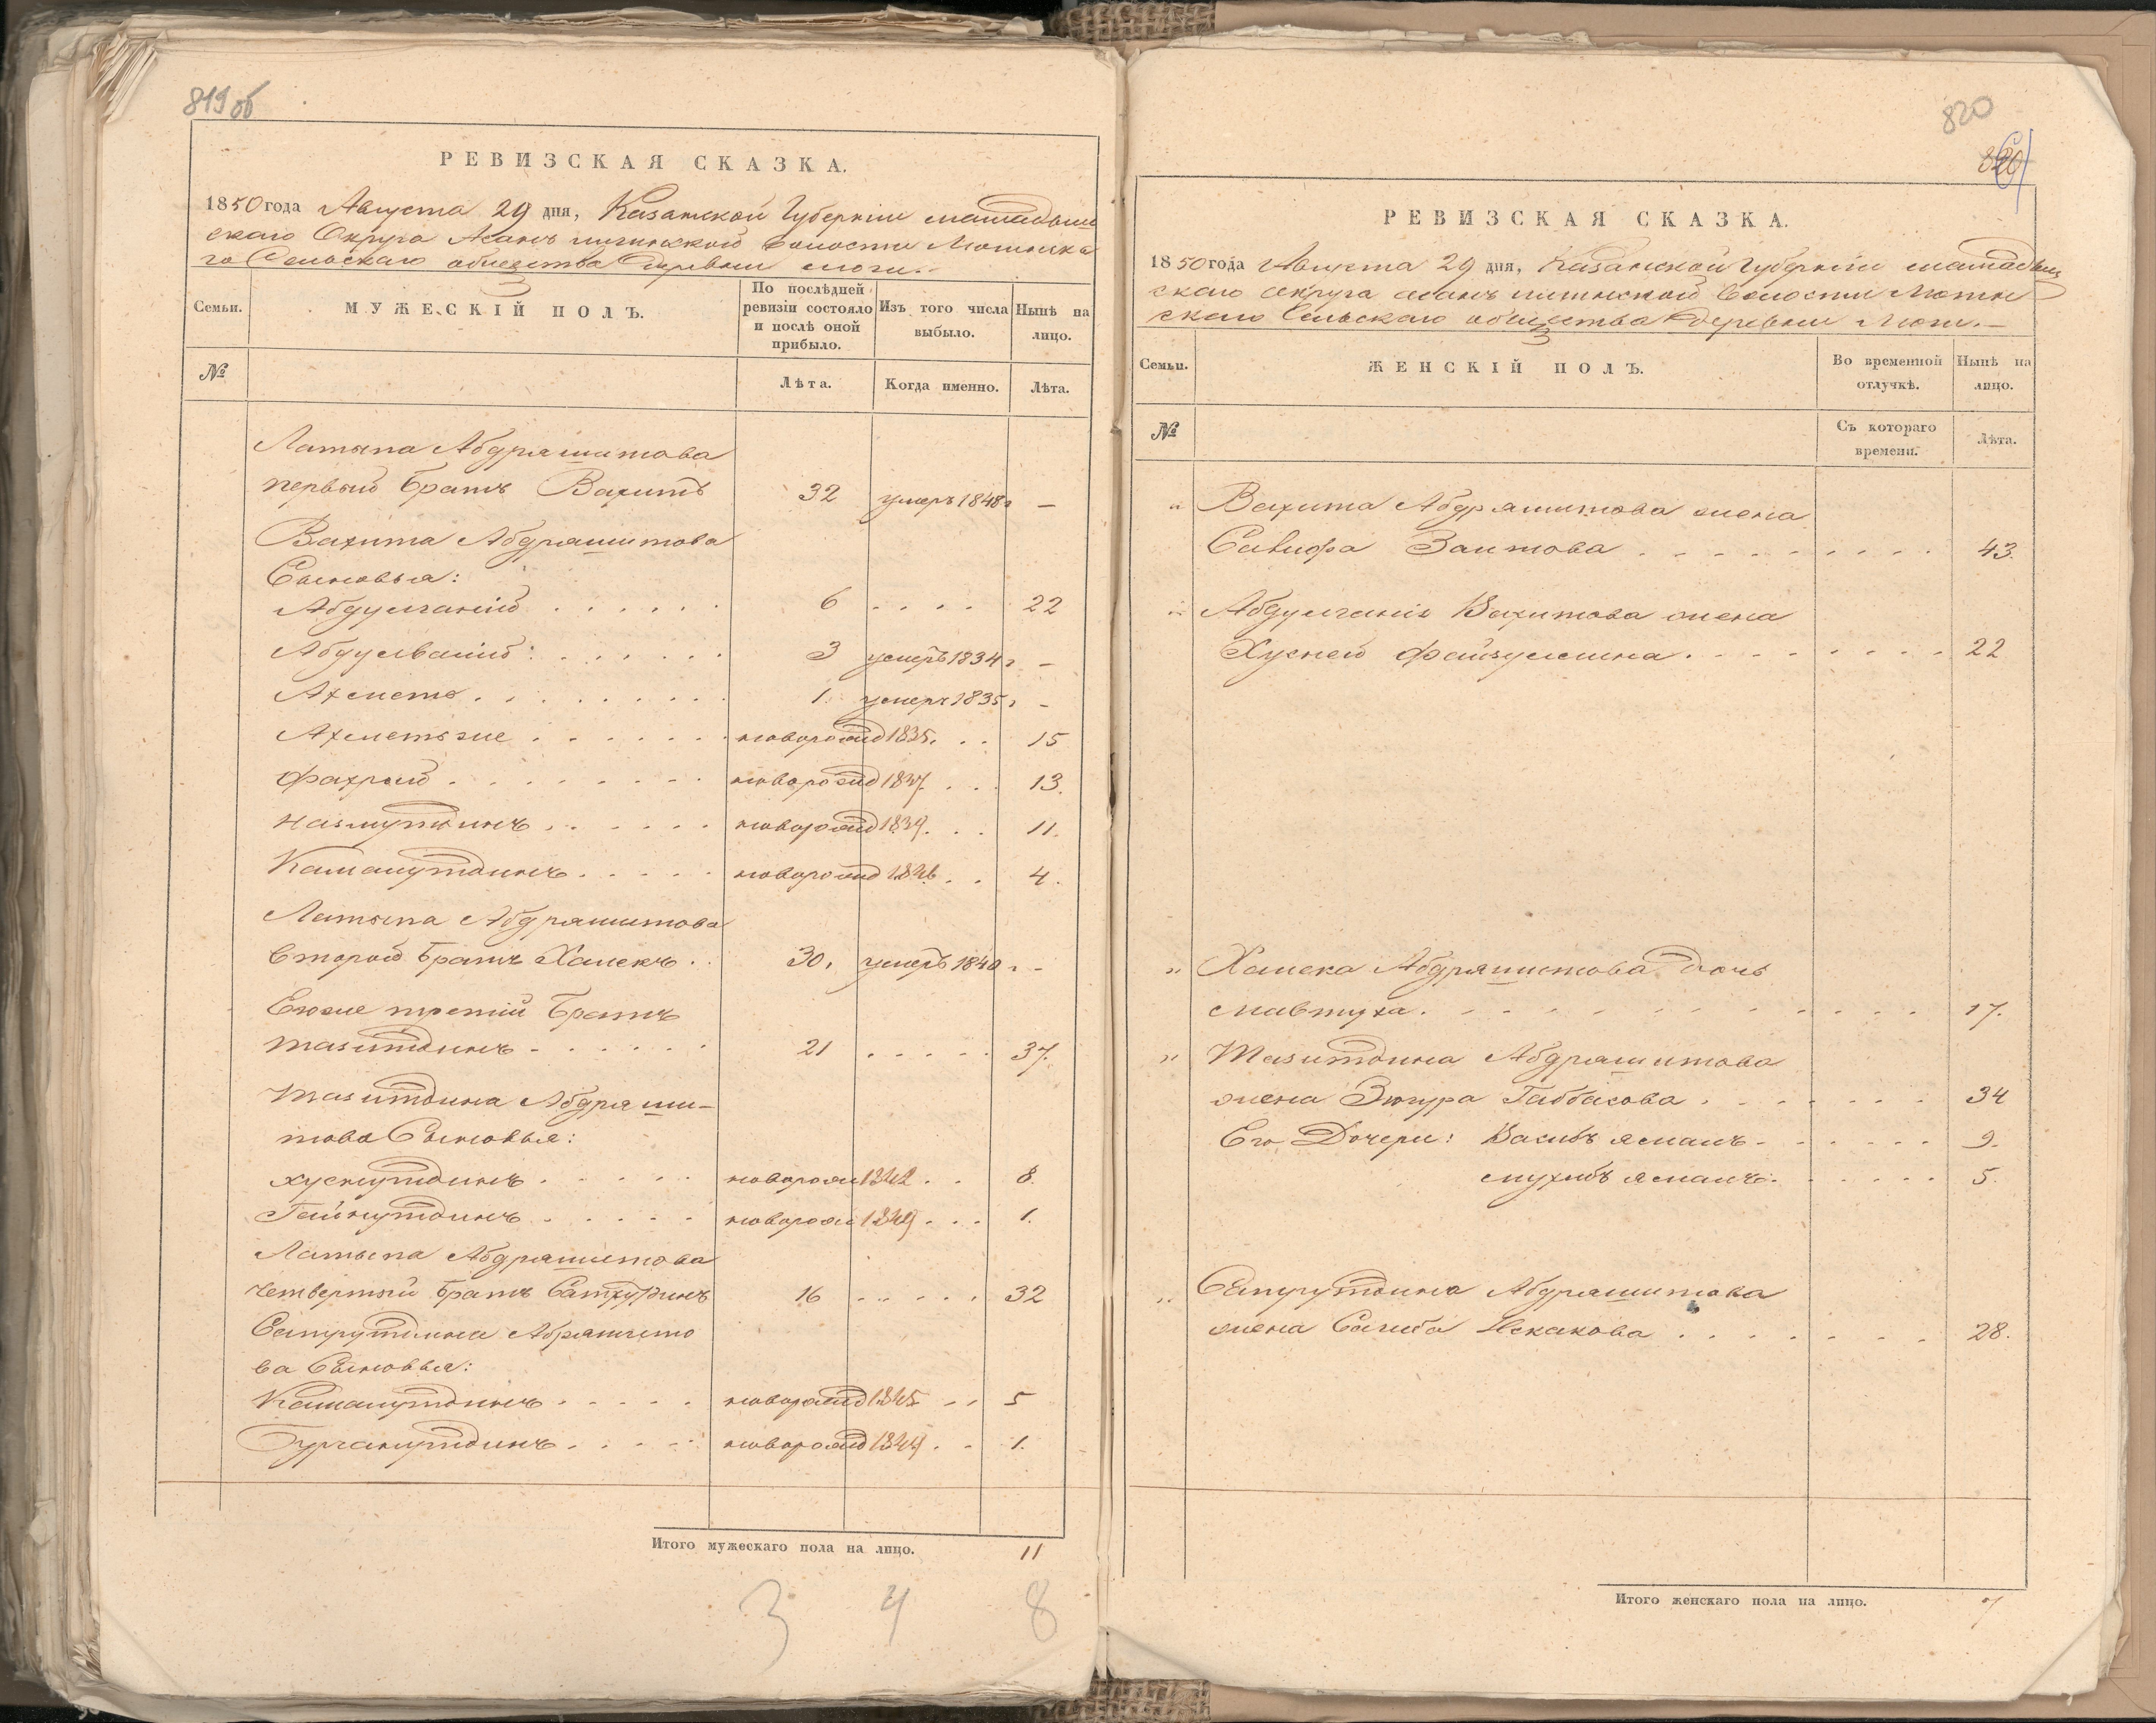 819об
РЕВИЗСКАЯ СКАЗКА.
1850 года Августа 29 дня, Казанской Губерніи мамадыш
скаго Округа Асанъ илгинской волости Мюшинска
го Сельскаго общества деревни
Семьи.
МУЖЕСКІЙ ПОЛЪ.
По послѣдней ревизіи состояло и послѣ оной прибыло.
Изъ того числа выбыло.
Нынѣ на лицо.
№
Лѣта.
Когда именно.
Лѣта.
Латыпа Абдряшитова
первый братъ Вахитъ 32 умеръ 1848 г —
Вахита Абдряшитова
Сыновья:
Абдулганій . . . . . . 6 . . . . 22
Абдулвалій . . . . . . 3 умеръ 1834 г —
Ахметъ . . . . . . . 1. умеръ 1835 г —
Ахметъзе . . . . . . новорожд 1835. . . 15
Фахрый . . . . . . . новорожд 1837. . . . 13.
Назмутдинъ . . . . . . новорожд 1839. . . . 11.
Камалутдинъ . . . . . новорожд 1846 . . 4.
Латыпа Абдряшитова
второй братъ Халекъ . . 30. умеръ 1840 г —
Егоже третій братъ
Тазитдинъ . . . . . . 21 . . . . . 37.
Тазитдина Абдряши-
това Сыновья:
Хуснутдинъ . . . . . новорож 1842 . . 8.
Гайнутдинъ . . . . . новорож 1849 . . . 1.
Латыпа Абдряшитова
четвертый братъ 16 . . . . . 32
Абряшито
ва Сыновья:
Камалутдинъ . . . . . новорожд 1845 . . 5
Бурганутдинъ . . . . . новорожд 1849 . . 1.
Итого мужескаго пола на лицо. 11
3 4 8
820
РЕВИЗСКАЯ СКАЗКА.
1850 года Августа 29 дня, Казанской Губерніи мамадыш
скаго округа асанъ илгинской волости Мюшин
скаго Сельскаго общества деревни
Семьи.
ЖЕНСКІЙ ПОЛЪ.
Во временной отлучкѣ.
Нынѣ на лицо.
№
Съ котораго времени.
Лѣта.
" Вахита Абдряшитова жена
Заитова . . . . . . . . . 43.
" Абдулганія Вахитова жена
Хусней Файзуллина . . . . . . . . 22
" Халека Абдряшитова дочь
Мавтуха . . . . . . . . . . . . 17.
" Тазитдина Абдряшитова
жена Зюгура Габбасова . . . . . . . 34
Его Дочери: Васибъ ямалъ . . . . . . 9.
Мухибъ ямалъ . . . . . . 5.
" Абдряшитова
жена Сагиба Искакова . . . . . . . 28.
Итого женскаго пола на лицо. 7